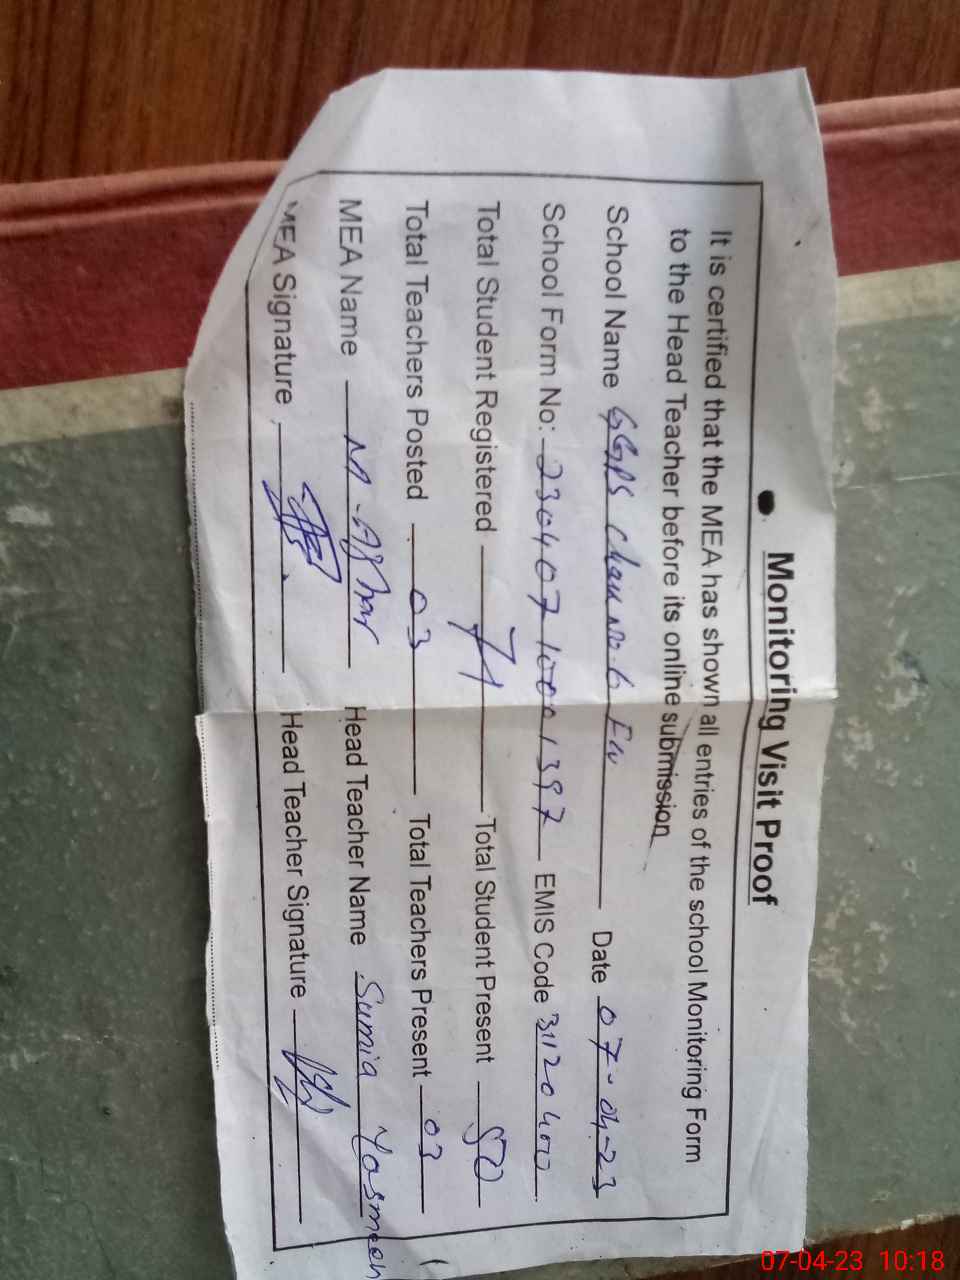 Monitoring Visit Proof
It is certified that the MEA has shown all entries of the school Monitoring Form
to the Head Teacher before its online submission
School Name GGPS Chak No. 6 Date 07-04-23
School Form No: 23040710001397 EMIS Code 31120400
Total Student Registered 71 Total Student Present 50
Total Teachers Posted 03 Total Teachers Present 03
MEA Name M. Azhar Head Teacher Name Sumia Yasmeen
MEA Signature Head Teacher Signature
07-04-23 10:18